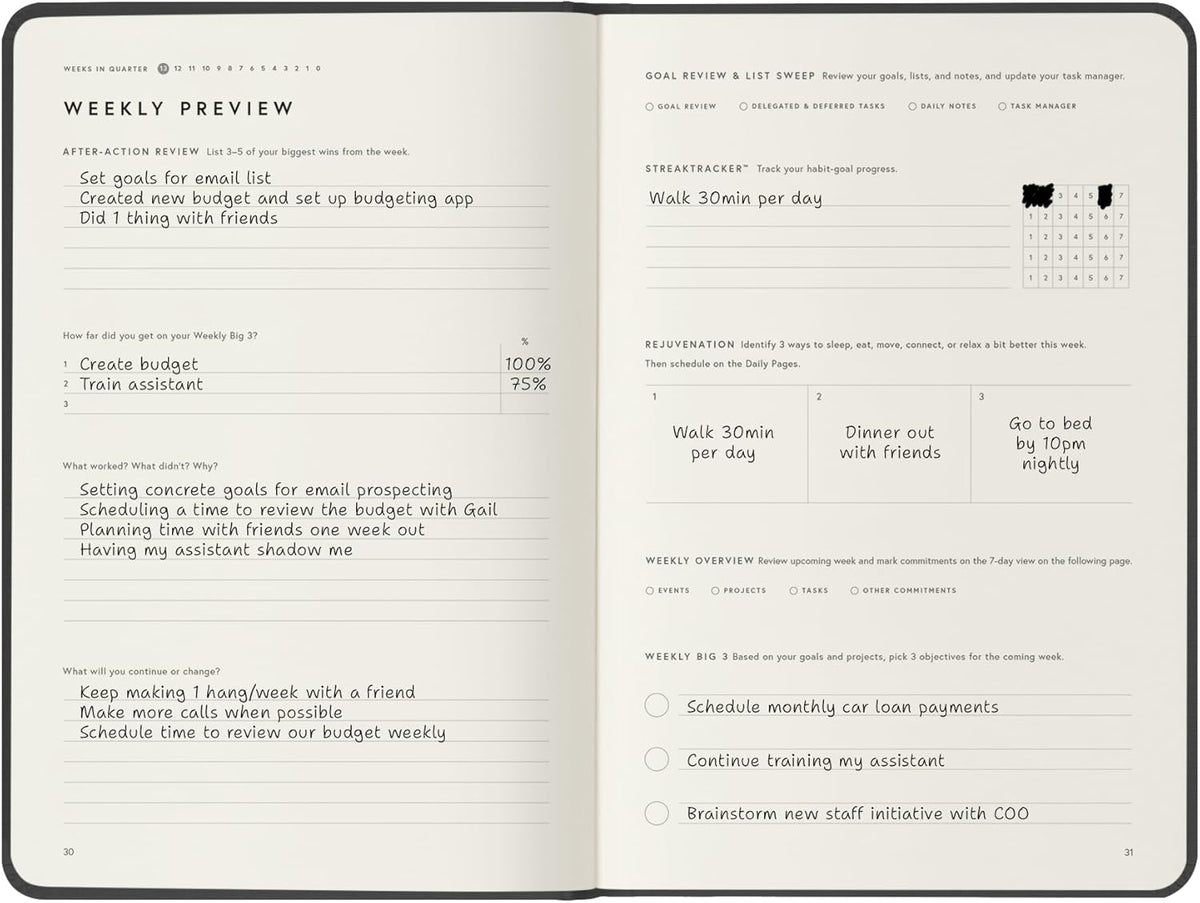 WEEKS IN QUARTER 13 12 11 10 9 8 7 6 5 4 3 2 1 0
WEEKLY PREVIEW
AFTER-ACTION REVIEW List 3–5 of your biggest wins from the week.
Set goals for email list
Created new budget and set up budgeting app
Did 1 thing with friends
How far did you get on your Weekly Big 3?
%
1 Create budget 100%
2 Train assistant 75%
3
What worked? What didn't? Why?
Setting concrete goals for email prospecting
Scheduling a time to review the budget with Gail
Planning time with friends one week out
Having my assistant shadow me
What will you continue or change?
Keep making 1 hang/week with a friend
Make more calls when possible
Schedule time to review our budget weekly
30
GOAL REVIEW & LIST SWEEP Review your goals, lists, and notes, and update your task manager.
GOAL REVIEW DELEGATED & DEFERRED TASKS DAILY NOTES TASK MANAGER
STREAKTRACKER™ Track your habit-goal progress.
Walk 30min per day 3 4 5 7
1 2 3 4 5 6 7
1 2 3 4 5 6 7
1 2 3 4 5 6 7
1 2 3 4 5 6 7
REJUVENATION Identify 3 ways to sleep, eat, move, connect, or relax a bit better this week.
Then schedule on the Daily Pages.
1
Walk 30min
per day
2
Dinner out
with friends
3
Go to bed
by 10pm
nightly
WEEKLY OVERVIEW Review upcoming week and mark commitments on the 7-day view on the following page.
EVENTS PROJECTS TASKS OTHER COMMITMENTS
WEEKLY BIG 3 Based on your goals and projects, pick 3 objectives for the coming week.
Schedule monthly car loan payments
Continue training my assistant
Brainstorm new staff initiative with COO
31